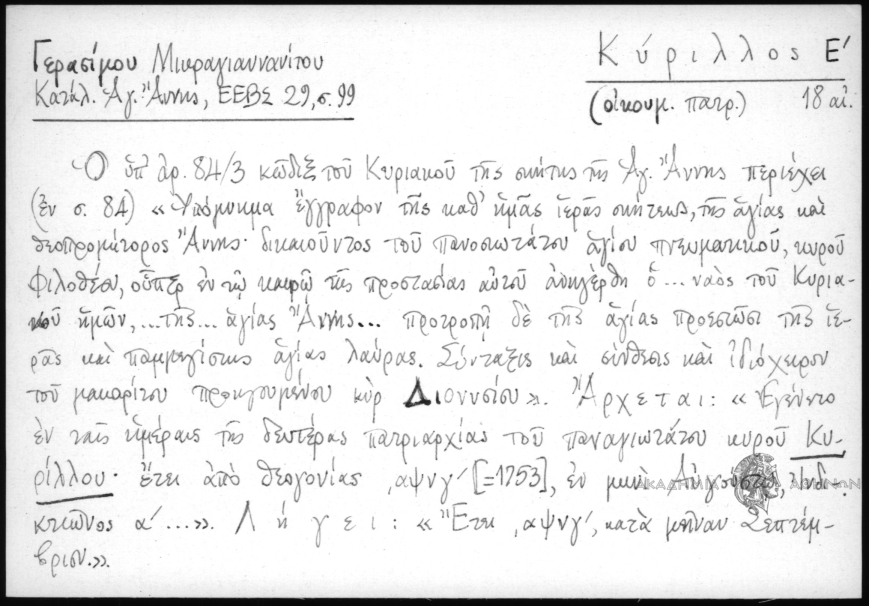 Γερασίμου Μικραγιαννανίτου
Κατάλ. Ἁγ. Ἄννης, ΕΕΒΣ 29, σ. 99
Κύριλλος Ε′
(οἰκουμ. πατρ.) 18 αἰ.
Ὁ ὑπ' ἀρ. 84/3 κῶδιξ τοῦ Κυριακοῦ τῆς σκήτης τῆς Ἁγ. Ἄννης περιέχει
(ἐν σ. 84) «Ὑπόμνημα ἔγγραφον τῆς καθ' ἡμᾶς ἱερᾶς σκήτεως, τῆς ἁγίας καὶ
θεοπρομήτορος Ἄννης· δικαιοῦντος τοῦ πανοσιωτάτου ἁγίου πνευματικοῦ, κυροῦ
Φιλοθέου, οὗπερ ἐν τῷ καιρῷ τῆς προστασίας αὐτοῦ ἀνηγέρθη ὁ ... ναὸς τοῦ Κυρια-
κοῦ ἡμῶν, ... τῆς ... ἁγίας Ἄννης ... προτροπῇ δὲ τῆς ἁγίας προεστῶσι τῆς ἱε-
ρᾶς καὶ παμμεγίστης ἁγίας λαύρας. Σύνταξις καὶ σύνθεσις καὶ ἰδιόχειρον
τοῦ μακαρίτου προηγουμένου κὺρ Διονυσίου». Ἄρχεται: «Ἐγένετο
ἐν ταῖς ἡμέραις τῆς δευτέρας πατριαρχίας τοῦ παναγιωτάτου κυροῦ Κυ-
ρίλλου· ἔτει ἀπὸ θεογονίας ͵αψνγ′ [=1753], ἐν μηνὶ Αὐγούστῳ, ἰνδι-
κτιῶνος α′ ...». Λήγει: «Ἔτει ͵αψνγ′, κατὰ μῆναν Σεπτέμ-
βριον.».
ΑΚΑΔΗΜΙΑ ΑΘΗΝΩΝ